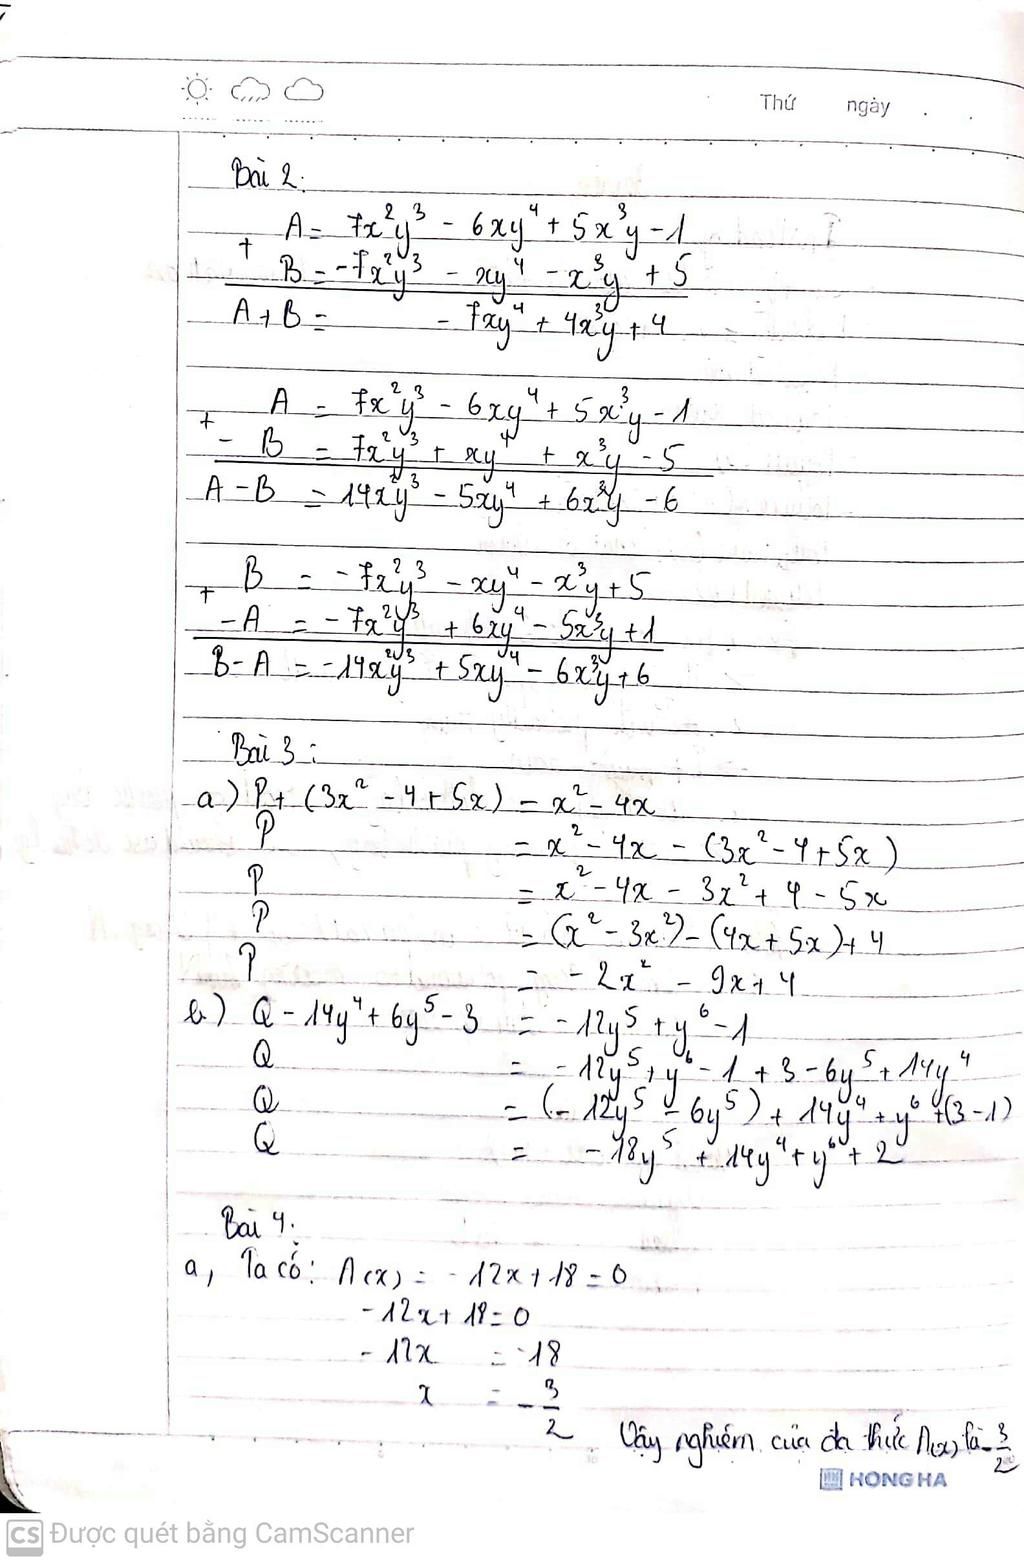 Thứ ngày
Bài 2:
A = 7x²y³ - 6xy⁴ + 5x³y - 1
+
B = -7x²y³ - xy⁴ - x³y + 5
A + B = - 7xy⁴ + 4x³y + 4
A = 7x²y³ - 6xy⁴ + 5x³y - 1
+
- B = 7x²y³ + xy⁴ + x³y - 5
A - B = 14x²y³ - 5xy⁴ + 6x³y - 6
B = -7x²y³ - xy⁴ - x³y + 5
+
- A = -7x²y³ + 6xy⁴ - 5x³y + 1
B - A = -14x²y³ + 5xy⁴ - 6x³y + 6
Bài 3:
a) P + (3x² - 4 + 5x) = x² - 4x
P = x² - 4x - (3x² - 4 + 5x)
P = x² - 4x - 3x² + 4 - 5x
P = (x² - 3x²) - (4x + 5x) + 4
P = - 2x² - 9x + 4
b) Q - 14y⁴ + 6y⁵ - 3 = -12y⁵ + y⁶ - 1
Q = -12y⁵ + y⁶ - 1 + 3 - 6y⁵ + 14y⁴
Q = (-12y⁵ - 6y⁵) + 14y⁴ + y⁶ + (3 - 1)
Q = -18y⁵ + 14y⁴ + y⁶ + 2
Bài 4:
a, Ta có: A(x) = -12x + 18 = 0
-12x + 18 = 0
-12x = -18
x = -3/2
Vậy nghiệm của đa thức A(x) là -3/2
HONG HA
CS Được quét bằng CamScanner